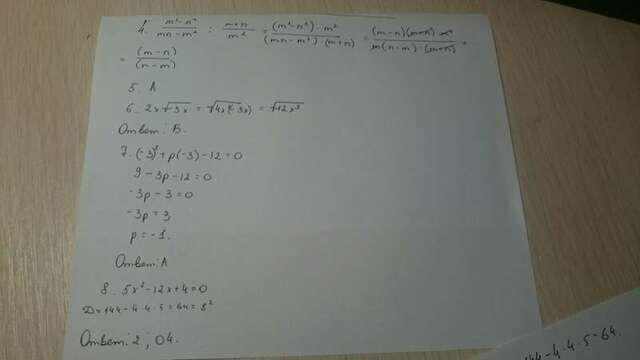 4. (m²-n²)/(mn-m²) : (m+n)/m² = (m²-n²)·m²/((mn-m²)·(m+n)) = (m-n)(m+n) m²/(m(n-m)(m+n)) =
= (m-n)/(n-m)
5. А
6. 2x√-3x = √4x²(-3x) = √-12x³
Ответ: Б.
7. (-3)²+p(-3)-12=0
9-3p-12=0
-3p-3=0
-3p=3
p=-1.
Ответ: А
8. 5x²-12x+4=0
D=144-4·4·5=64=8²
Ответ: 2 ; 04.
144-4·4·5=64.